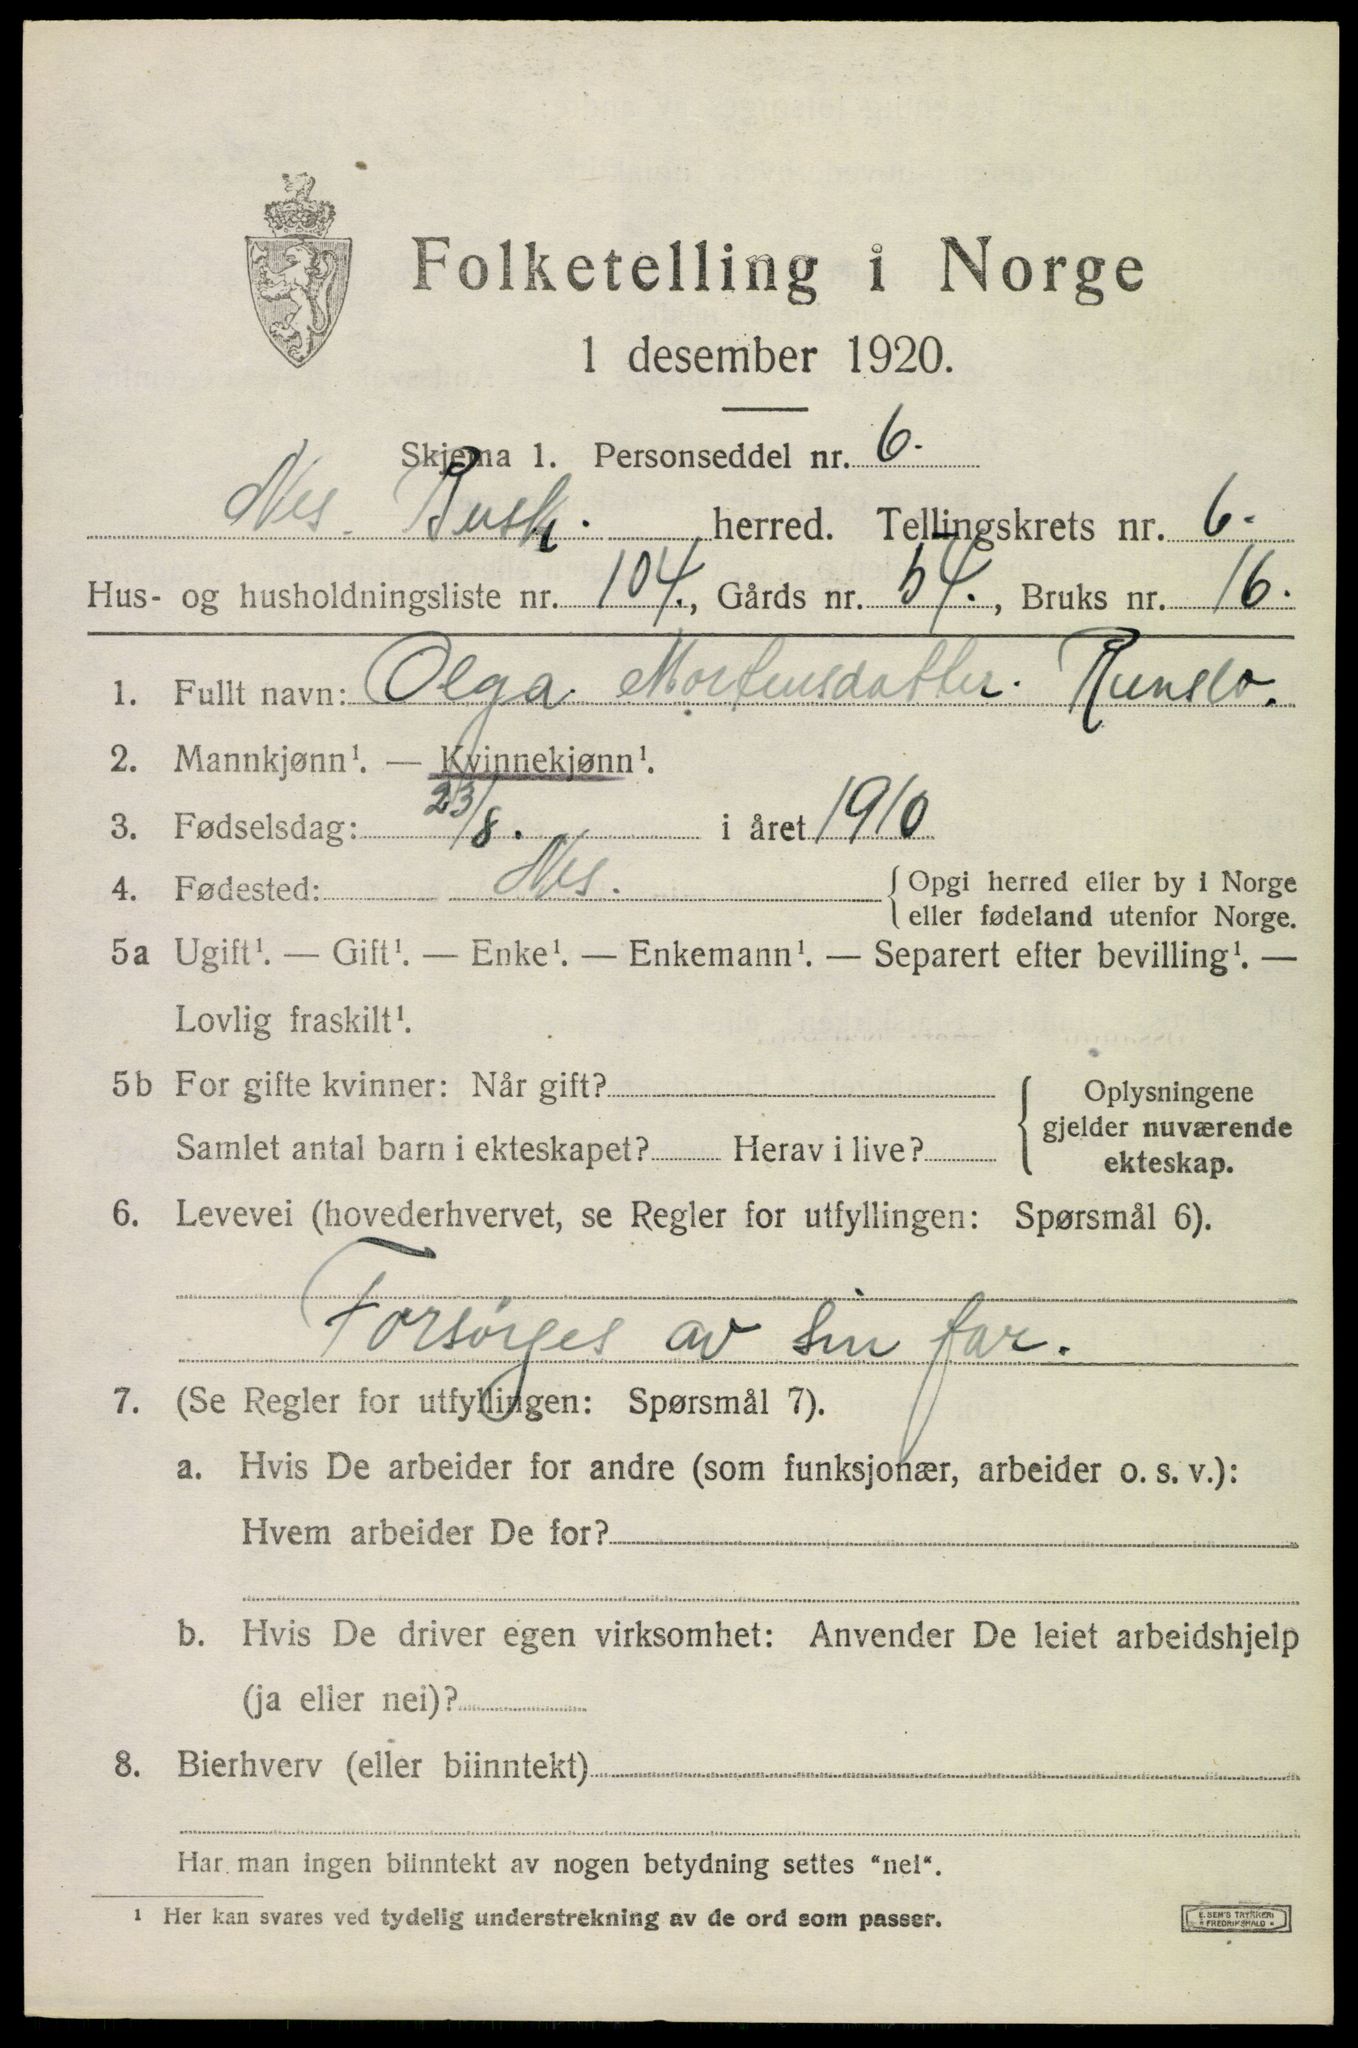 Folketelling i Norge
1 desember 1920.
Skjema 1. Personseddel nr. 6.
Nes. Busk. herred. Tellingskrets nr. 6.
Hus- og husholdningsliste nr. 104., Gårds nr. 54., Bruks nr. 16.
1. Fullt navn: Olga Mortensdatter.
2. Mannkjønn¹. — Kvinnekjønn¹.
3. Fødselsdag: 23/8. i året 1910
4. Fødested: Nes. Opgi herred eller by i Norge
eller fødeland utenfor Norge.
5a Ugift¹. — Gift¹. — Enke¹. — Enkemann¹. — Separert efter bevilling¹. —
Lovlig fraskilt¹.
5b For gifte kvinner: Når gift?
Samlet antal barn i ekteskapet? Herav i live?
Oplysningene
gjelder nuværende
ekteskap.
6. Levevei (hovederhvervet, se Regler for utfyllingen: Spørsmål 6).
Forsørges av sin far.
7. (Se Regler for utfyllingen: Spørsmål 7).
a. Hvis De arbeider for andre (som funksjonær, arbeider o. s. v.):
Hvem arbeider De for?
b. Hvis De driver egen virksomhet: Anvender De leiet arbeidshjelp
(ja eller nei)?
8. Bierhverv (eller biinntekt)
Har man ingen biinntekt av nogen betydning settes "nei".
¹ Her kan svares ved tydelig understrekning av de ord som passer.
E. SEM'S TRYKKERI
FREDRIKSHALD